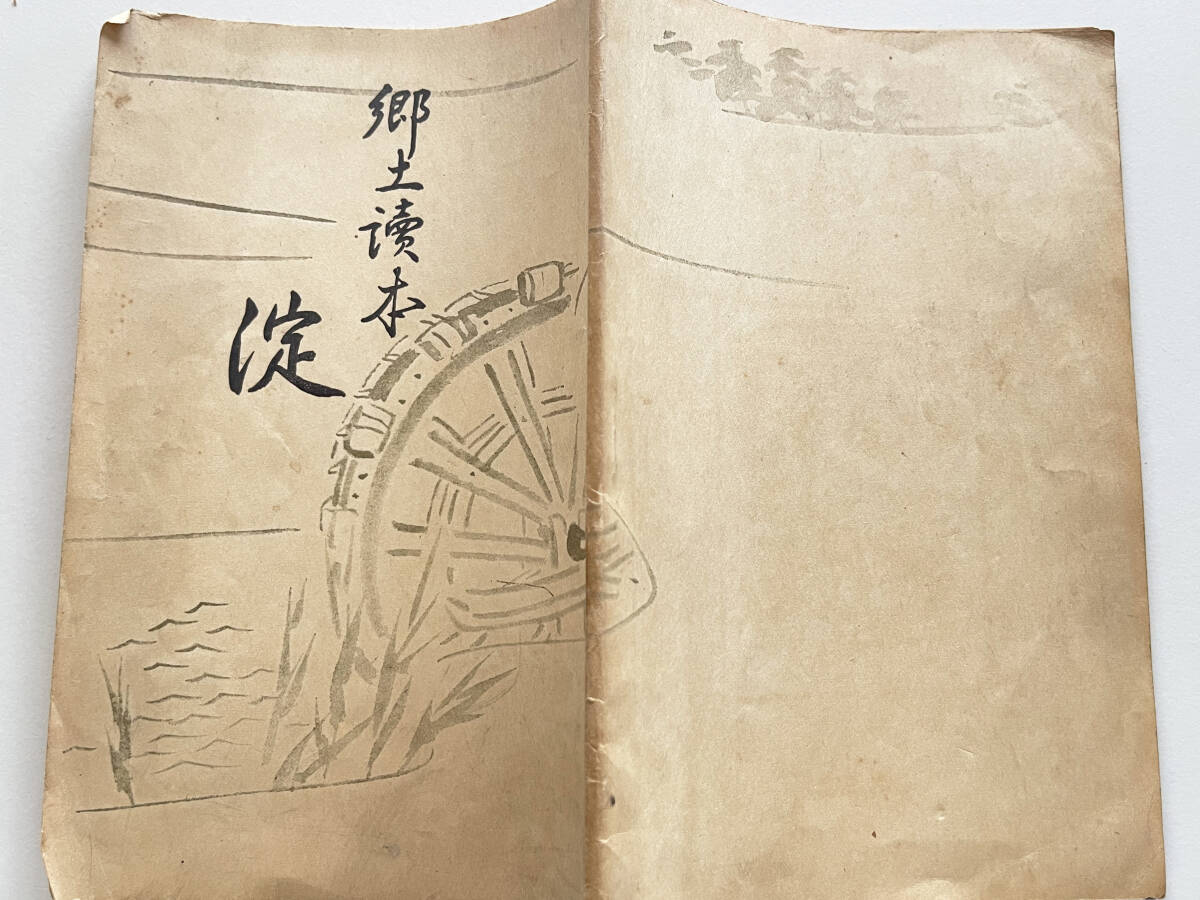 郷土讀本
淀